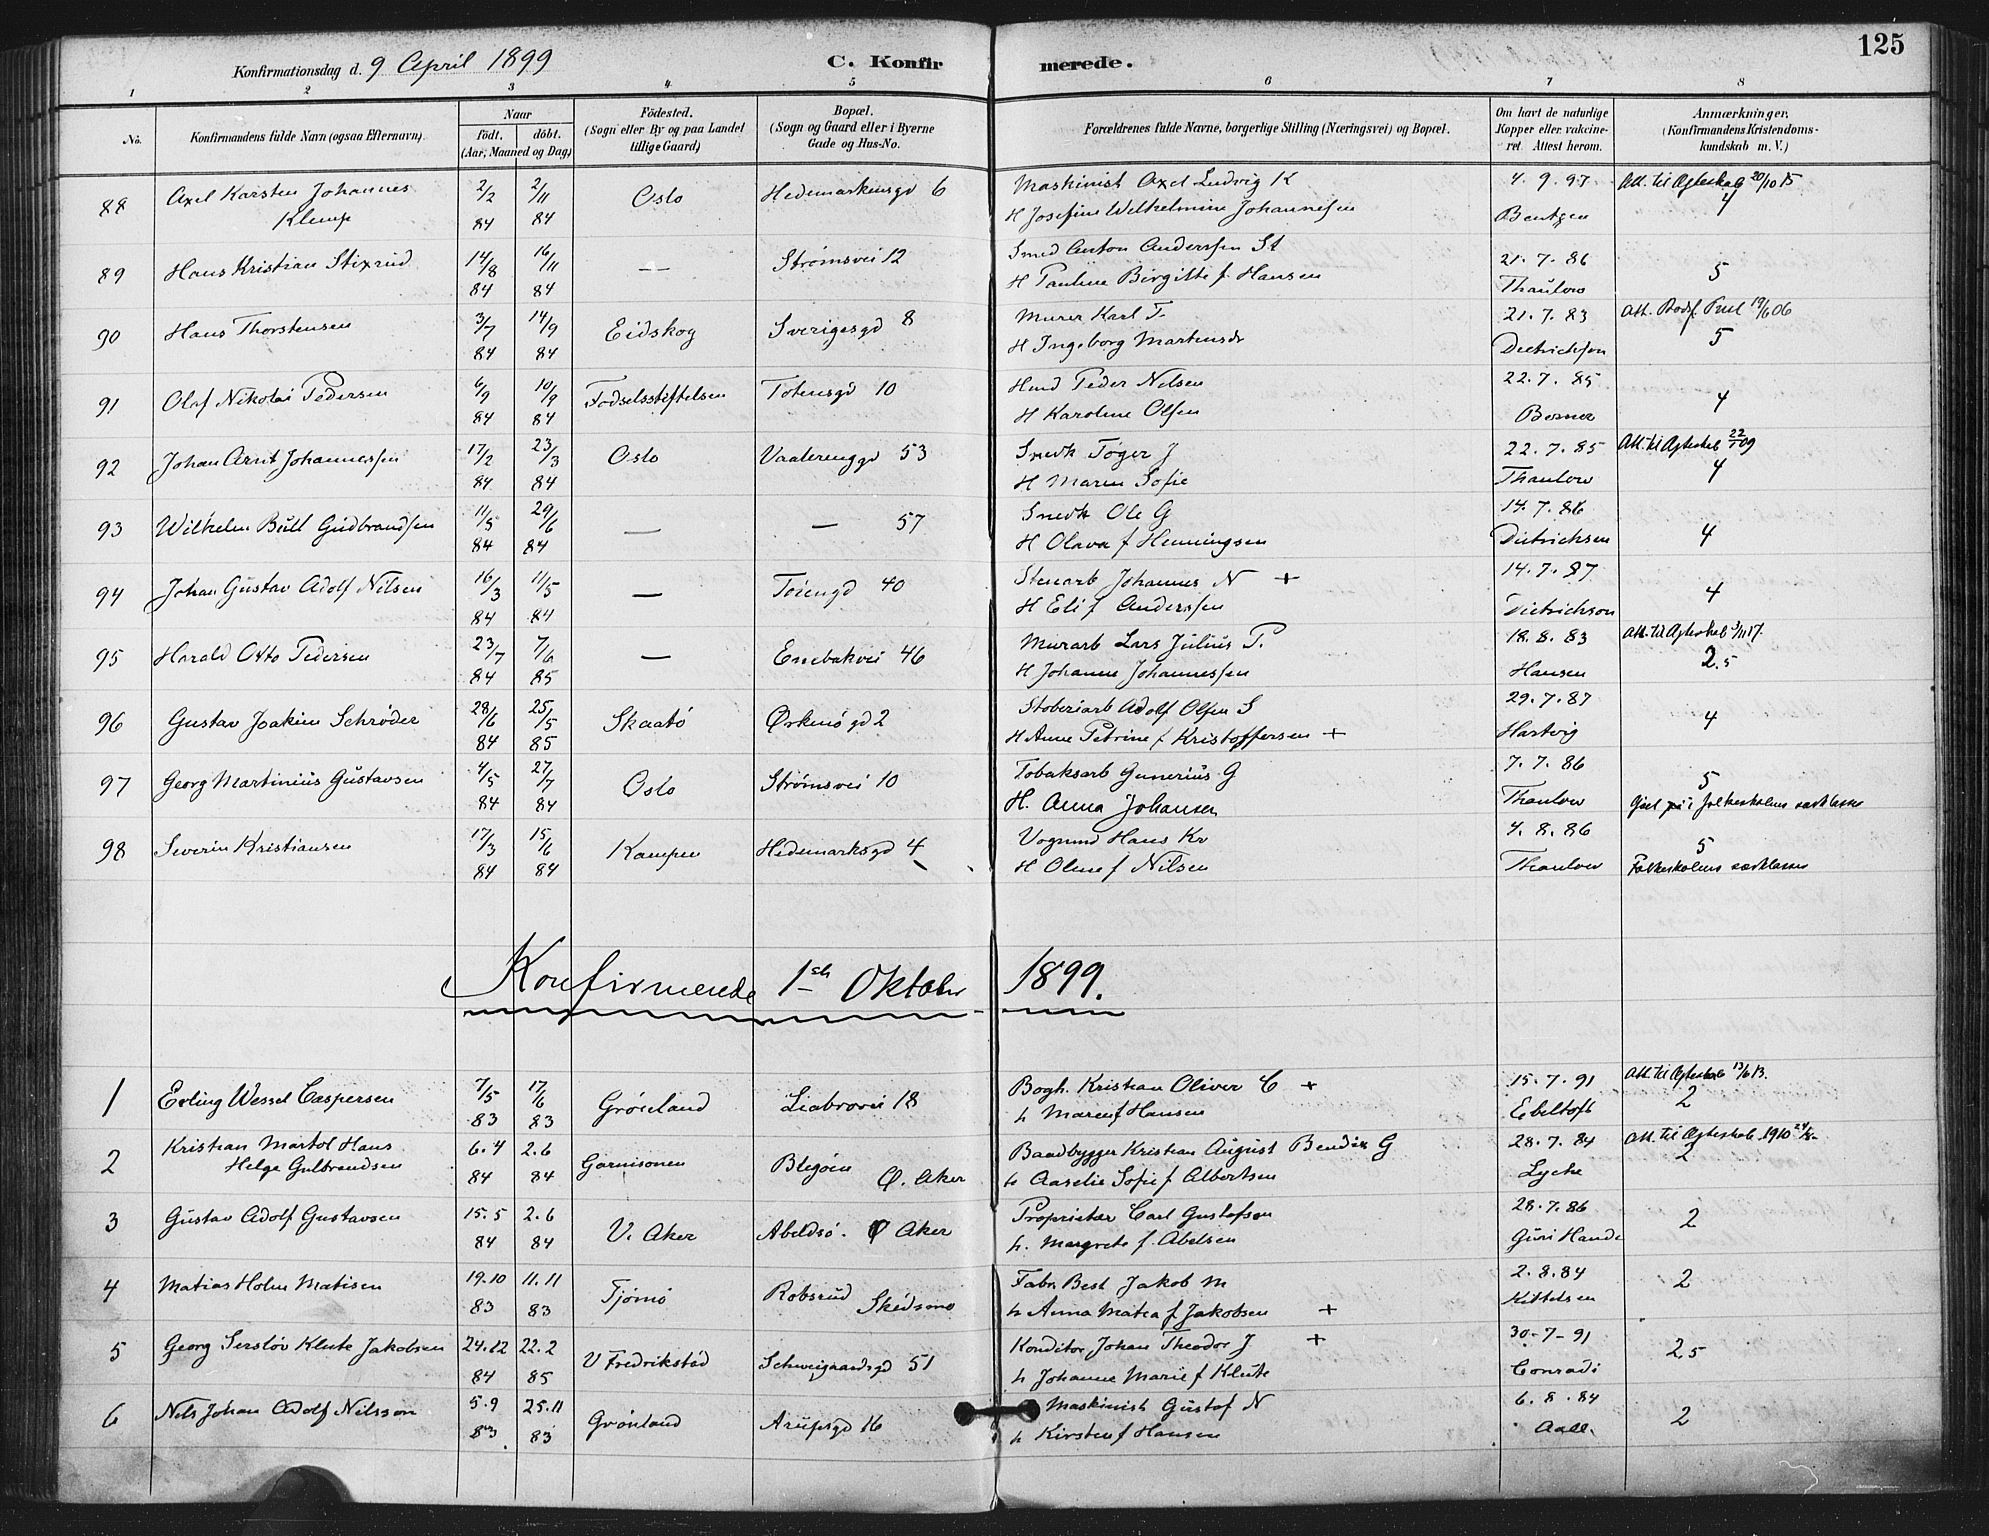 125
Konfirmationsdag d. 9 April 1899 C. Konfirmerede.
1 2 3 4 5 6 7 8
No. Konfirmandens fulde Navn (ogsaa Efternavn). Naar født. døbt. (Aar, Maaned og Dag) Fødested. (Sogn eller By og paa Landet tillige Gaard) Bopæl. (Sogn og Gaard eller i Byerne Gade og Hus-No. Forældrenes fulde Navne, borgerlige Stilling (Næringsvei) og Bopæl. Om havt de naturlige Kopper eller vakcineret. Attest herom. Anmærkninger. (Konfirmandens Kristendomskundskab m. V.)
88 Axel Karsten Johannes 2/2 2/11 Oslo Hedemarkensgd 6 Maskinist Axel Ludvig K 4. 9. 97 Att. til Ægteskab 20/10 15
Klemp 84 84 H Josefine Wilhelmine Johannesen Bentzen 4
89 Hans Kristian Stixrud 14/8 16/11 — Strømsvei 12 Smed Anton Anderssen St 21. 7. 86 5
84 84 H Pauline Birgitte f. Hansen Thaulow
90 Hans Thorstensen 3/7 14/9 Eidskog Sverigesgd 8 Murer Karl T. 21. 7. 83 Att. 19/6 06
84 84 H Ingeborg Martinsdr Dietrichson 5
91 Olaf Nikolai Pedersen 6/9 10/9 Fødselsstiftelsen Totensgd 10 Peder Nilsen 22. 7. 85 4
84 84 H Karoline Olsen
92 Johan Arnt Johannessen 17/2 23/3 Oslo Vaalerenggd 53 Snedk Tøger J 22. 7. 85 Att. til Ægteskab 22/1 09
84 84 H Maren Sofie Thaulow 4
93 Wilhelm Bull Gudbrandsen 11/5 29/6 — — 57 Snedk Ole G 14. 7. 86 4
84 84 H Olava f Henningsen Dietrichsen
94 Johan Gustav Adolf Nilsen 16/3 11/5 — Tøiengd 40 Stenarb Johannes N + 14. 7. 87 4
84 84 H Eli f Anderssen Dietrichson
95 Harald Otto Pedersen 23/7 7/6 — Enebakvei 46 Murarb Lars Julius P. 18. 8. 83 Att. til Ægteskab 3/11 17.
84 85 H Johanne Johannessen Hansen 2.5
96 Gustav Joakim Schrøder 28/6 25/5 Skaatø Ørkensgd 2 Støberiarb Adolf Olsen S 29. 7. 87 4
84 85 H Anne Petrine f Kristoffersen + Hartvig
97 Georg Martinius Gustavsen 4/5 27/7 Oslo Strømsvei 10 Tobaksarb Gunerius G 7. 7. 86 5
84 84 H. Anna Johansen Thaulow i folkeskolens særklasse
98 Severin Kristiansen 17/3 15/6 Kampen Hedemarksgd 4 Vognmd Hans Kr 4. 8. 86 5
84 84 H Oline f Nilsen Thaulow Folkeskolens særklasse
Konfirmerede 1ste Oktober 1899.
1 Erling Wessel Caspersen 7/5 17/6 Grønland Liabrovei 18 Bogh. Kristian Oliver C + 15. 7. 91 Att. til Ægteskab 13/6 13.
83 83 h Maren f Hansen Ebeltoft 2
2 Kristian Martol Hans 6. 4 2. 6 Garnisonen Blegøen Baadbygger Kristian August Bendix G 28. 7. 84 Att. til Ægteskab. 1910 24/8
Helge Gulbrandsen 84 84 Ø. Aker h Aaselie Sofie f Albertsen Lyche 2
3 Gustav Adolf Gustavsen 15. 5 2. 6 V. Aker Abeldsø. Ø Aker Proprietær Carl Gustafson 28. 7. 86 2
84 84 h. Margrete f. Abelsen Guri Hande
4 Matias Holm Matisen 19. 10 11. 11 Tjømø Robsrud Fabr. Best Jakob M 2. 8. 84 2
83 83 Skedsmo h Anna Matea f. Jakobsen + Kittelsen
5 Georg Sersløv Klute Jakobsen 24. 12 22. 2 V Fredrikstad Schweigaardsgd 51 Konditor Johan Theodor J + 30-7-91 2,5
84 85 h Johanne Marie f Klute Conradi
6 Nils Johan Adolf Nilsson 5. 9 25. 11 Grønland Arupsgd 16 Maskinist Gustaf N 6. 8. 84 2
83 83 h Kirsten f Hansen Aall.